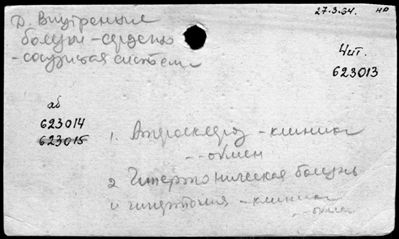 Д. Внутренние
болезни - сердечно
- сосудистая система
27.3.34.
Чит.
623013
аб
623014
623015
1. Атеросклероз - клиника
- обмен
2 Гипертоническая болезнь
и гипертония - клиника
- обмен